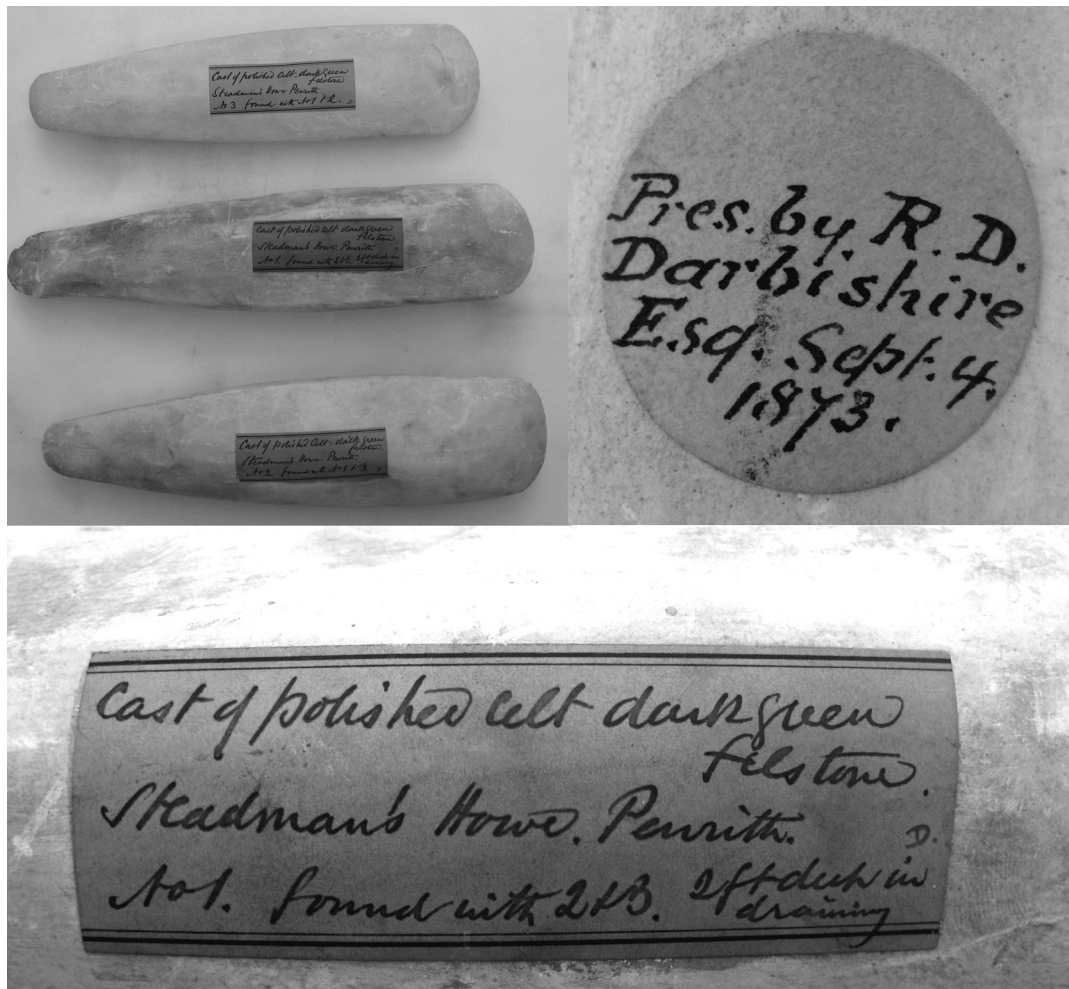 Cast of polished Celt. dark green
felstone
Steadman's Howe Penrith
No 3 found with No 1 & 2. D
Cast of polished Celt dark green
felstone
Steadman's Howe. Penrith
No 1. found with 2 & 3. 2 ft deep in
draining
Cast of polished Celt. dark green
felstone.
Steadman's Howe. Penrith
No 2 found with No 1 & 3.
Pres. by. R. D.
Darbishire
Esq. Sept. 4.
1873.
Cast of polished Celt dark green
felstone.
Steadman's Howe. Penrith.
D.
No 1. found with 2 & 3. 2 ft deep in
draining